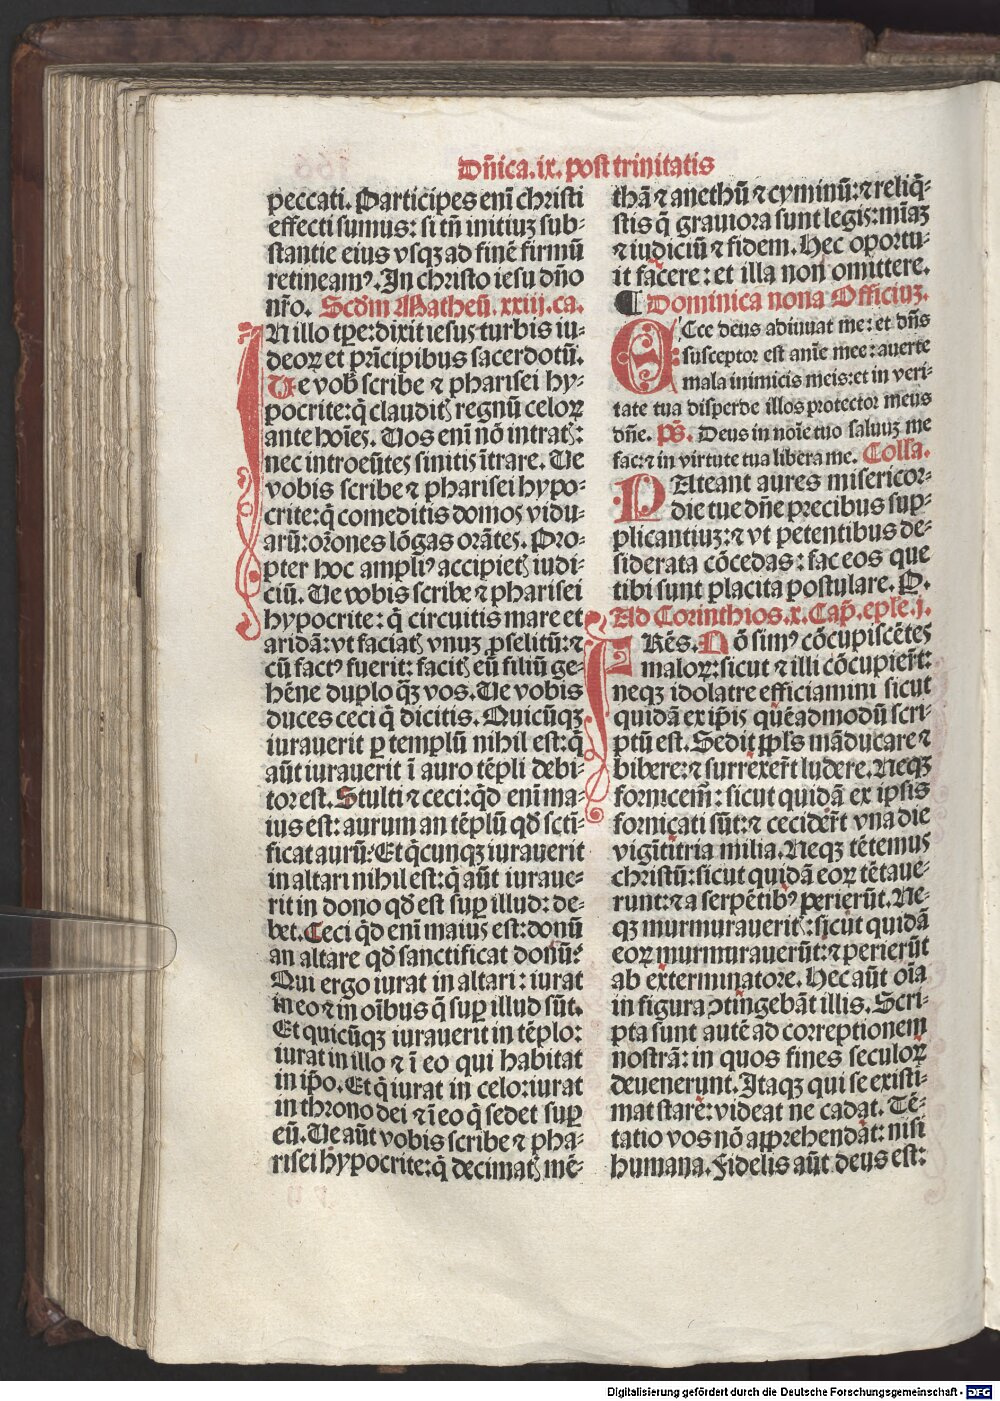 Dñica.ix.post trinitatis
peccati. Participes eni christi
effecti sumus: si tñ initiuꝫ sub⸗
stantie eius vsqꝫ ad finē firmū
retineamꝰ. In christo iesu dño
nr̄o. Scdm Matheū. xxiij.ca.
IN illo tꝑe: dixit iesus turbis iu⸗
deoꝝ et prīcipibus sacerdotū.
Ve vob̄ scribe ⁊ pharisei hy⸗
pocrite: q̄ clauditꝭ regnū celoꝝ
ante hoīeꝫ. Uos enī nō intratꝭ:
nec introeūtes sinitis ītrare. Ve
vobis scribe ⁊ pharisei hypo⸗
crite: q̄ comeditis domos vidu⸗
arū: or̄ones lōgas orātes. Pro⸗
pter hoc ampliꝰ accipietꝭ iudi⸗
ciū. Ve vobis scribe ⁊ pharisei
hypocrite: q̄ circuitis mare et
aridā: vt faciatꝭ vnuꝫ ꝓselitū: ⁊
cū factꝰ fuerit: facitꝭ eū filiū ge⸗
hēne duplo q̄ꝫ vos. Ve vobis
duces ceci q̄ dicitis. Quicūqꝫ
iurauerit ꝑ templū nihil est: q̄
aūt iurauerit ī auro tēpli debi⸗
tor est. Stulti ⁊ ceci: qd̄ enī ma⸗
ius est: aurum an tēplū qd̄ scti⸗
ficat aurū: Et q̄cunqꝫ iurauerit
in altari nihil est: q̄ aūt iuraue⸗
rit in dono qd̄ est suꝑ illud: de⸗
bet. Ceci qd̄ enī maius est: donū
an altare qd̄ sanctificat donū:
Qui ergo iurat in altari: iurat
in eo ⁊ in oībus q̄ suꝑ illud sūt.
Et quicūqꝫ iurauerit in tēplo:
iurat in illo ⁊ ī eo qui habitat
in ip̄o. Et q̄ iurat in celo: iurat
in throno dei ⁊ ī eo q̄ sedet suꝑ
eū. Ve aūt vobis scribe ⁊ pha⸗
risei hypocrite: q̄ decimatꝭ mē⸗
thā ⁊ anethū ⁊ cyminū: ⁊ reliq̄⸗
stis q̄ grauiora sunt legis: mīaꝫ
⁊ iudiciū ⁊ fidem. Hec oportu⸗
it facere: et illa non omittere.
¶ Dominica nona Officiuꝫ.
ECce deus adiuuat me: et dñs
susceptor est anīe mee: auerte
mala inimicis meis: et in veri⸗
tate tua disperde illos protector meus
dñe. pš. Deus in noīe tuo saluuꝫ me
fac: ⁊ in virtute tua libera me. Coll'a.
PAteant aures misericor⸗
die tue dñe precibus sup⸗
plicantiuꝫ: ⁊ vt petentibus de⸗
siderata cōcedas: fac eos que
tibi sunt placita postulare. P.
Ad Corinthios. x. Cap̄. ep̄le. j.
FRēs. Nō simꝰ cōcupiscētes
maloꝝ: sicut ⁊ illi cōcupier̄t:
neqꝫ idolatre efficiamini sicut
quidā ex ip̄is quēadmodū scri⸗
ptū est. Sedit ppl̄s māducare ⁊
bibere: ⁊ surrexer̄t ludere. Neqꝫ
fornicem̄: sicut quidā ex ipsis
fornicati sūt: ⁊ cecider̄t vna die
vigītitria milia. Neqꝫ tētemus
christū: sicut quidā eoꝝ tētaue⸗
runt: ⁊ a serpētibꝰ perierūt. Ne⸗
qꝫ murmuraueritꝭ: sicut quidā
eoꝝ murmurauerūt: ⁊ perierūt
ab exterminatore. Hec aūt oīa
in figura ꝯtingebāt illis. Scri⸗
pta sunt autē ad correptionem
nostrā: in quos fines seculoꝝ
deuenerunt. Itaqꝫ qui se existi⸗
mat stare: videat ne cadat. Tē⸗
tatio vos nō apprehendat: nisi
humana. Fidelis aūt deus est:
Digitalisierung gefördert durch die Deutsche Forschungsgemeinschaft - DFG